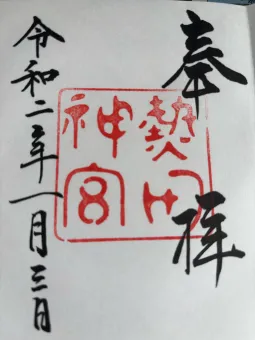 奉拝
熱田神宮
令和二年一月三日